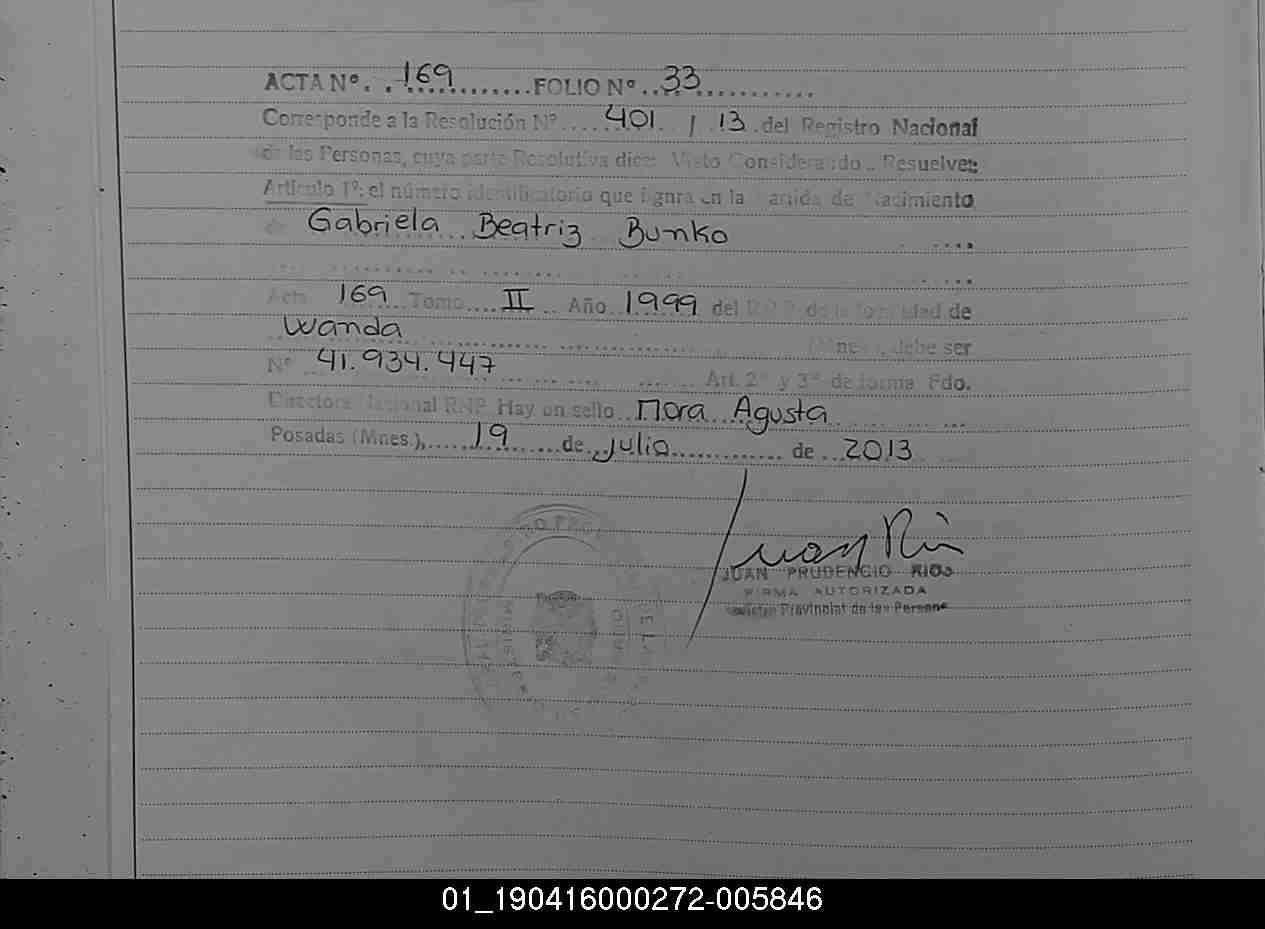 ACTA Nº. . 169 ............ FOLIO Nº ... 33 ............
Corresponde a la Resolución Nº ..... 401 / 13 . del Registro Nacional
de las Personas, cuya parte Resolutiva dice: Visto Considerando .. Resuelve:
Artículo 1º: el número identificatorio que fignra en la Partida de Nacimiento
de Gabriela Beatriz Bunko ....
Acta 169 Tomo .... II .. Año 1999 del R.P.P. de la localidad de
Wanda ........ (Mnes.), debe ser
Nº 41.934.447 ........ Art. 2º y 3º de forma Fdo.
Directora Nacional RNP. Hay un sello .. Mora Agusta ......
Posadas (Mnes.), ..... 19 ...... de .. Julio ............ de .. 2013
Juan Rios
JUAN PRUDENCIO RIOS
FIRMA AUTORIZADA
Registro Provincial de las Personas
01_190416000272-005846